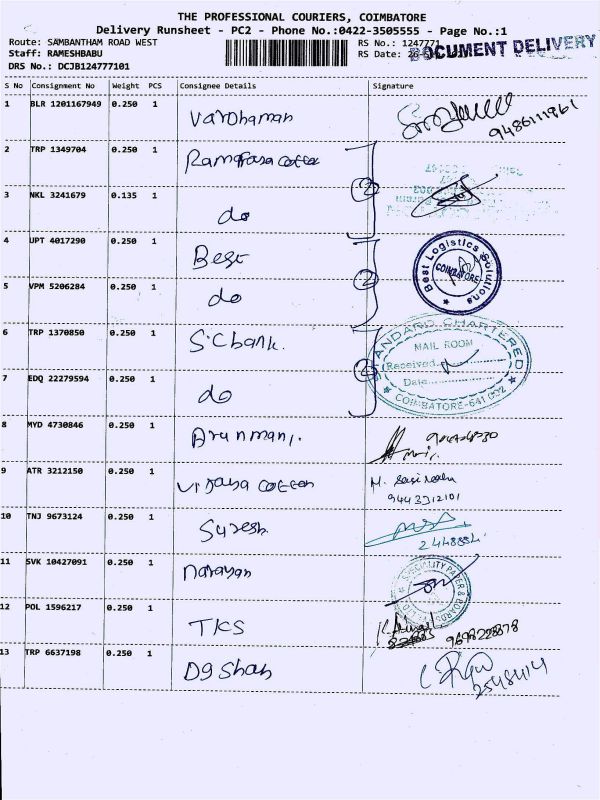 THE PROFESSIONAL COURIERS, COIMBATORE
Delivery Runsheet - PC2 - Phone No.:0422-3505555 - Page No.:1
Route: SAMBANTHAM ROAD WEST RS No.: 1247771
Staff: RAMESHBABU RS Date: DOCUMENT DELIVERY
DRS No.: DCJB124777101
S No Consignment No Weight PCS Consignee Details Signature
1 BLR 1201167949 0.250 1 Vardhaman
9486111961
2 TRP 1349704 0.250 1
2
3 NKL 3241679 0.135 1 do
4 UPT 4017290 0.250 1 Best
Best Logistics Solutions
COIMBATORE
2
5 VPM 5206284 0.250 1 do
6 TRP 1370850 0.250 1 S.C bank.
STANDARD CHARTERED
MAIL ROOM
Received
Date
COIMBATORE-641 002
7 EDQ 22279594 0.250 1 do
8 MYD 4730846 0.250 1 Arunmani.
9 ATR 3212150 0.250 1 vijaya cotton
9443312101
10 TNJ 9673124 0.250 1 Suresh
11 SVK 10427091 0.250 1 Narayan
SPECIALITY PAPER & BOARDS
12 POL 1596217 0.250 1 TKS
13 TRP 6637198 0.250 1 D9 Shah